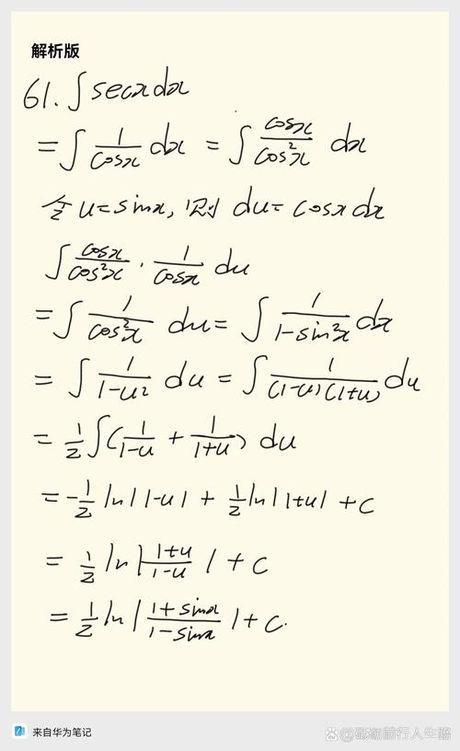 解析版
61. ∫secxdx
= ∫ 1/cosx dx = ∫ cosx/cos²x dx
令u=sinx, 则 du=cosxdx
∫ cosx/cos²x · 1/cosx du
= ∫ 1/cos²x du = ∫ 1/(1-sin²x) dx
= ∫ 1/(1-u²) du = ∫ 1/((1-u)(1+u)) du
= 1/2 ∫(1/(1-u) + 1/(1+u)) du
= -1/2 ln|1-u| + 1/2 ln|1+u| + C
= 1/2 ln|(1+u)/(1-u)| + C
= 1/2 ln|(1+sinx)/(1-sinx)| + C.
来自华为笔记